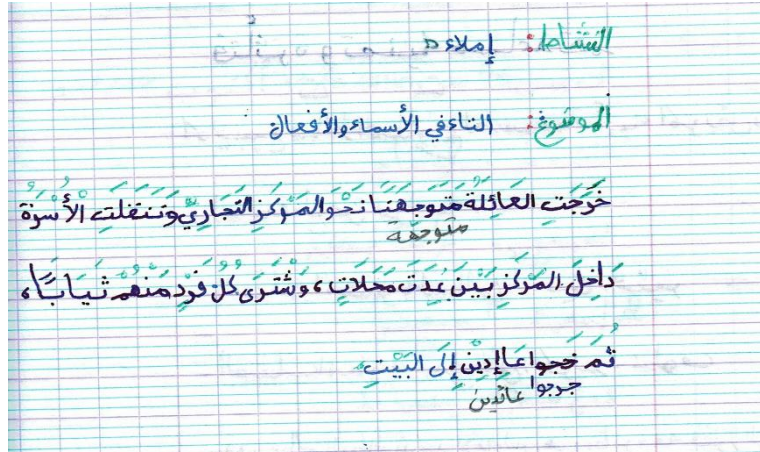 النشاط: إملاء
الموضوع: التاء في الأسماء والأفعال
خَرَجَتِ العَائِلَة مُتَوَجِهَتًا نَحْوَ المَرْكَزِ التِجَارِيِّ وَتَنَقَلَتِ الْأُسْرَةُ
متوجهة
دَاخِلَ المَرْكَزِ بَيْنَ عِدَتَ مَحَلَاتٍ، وَشْتَرَى كُلُ فَرْدٍ مِنْهُمْ ثِيَابًا،
ثُمَ خَجوا عَاإدِيْنِ إِلَى البَيْتِ.
خرجوا عائدين